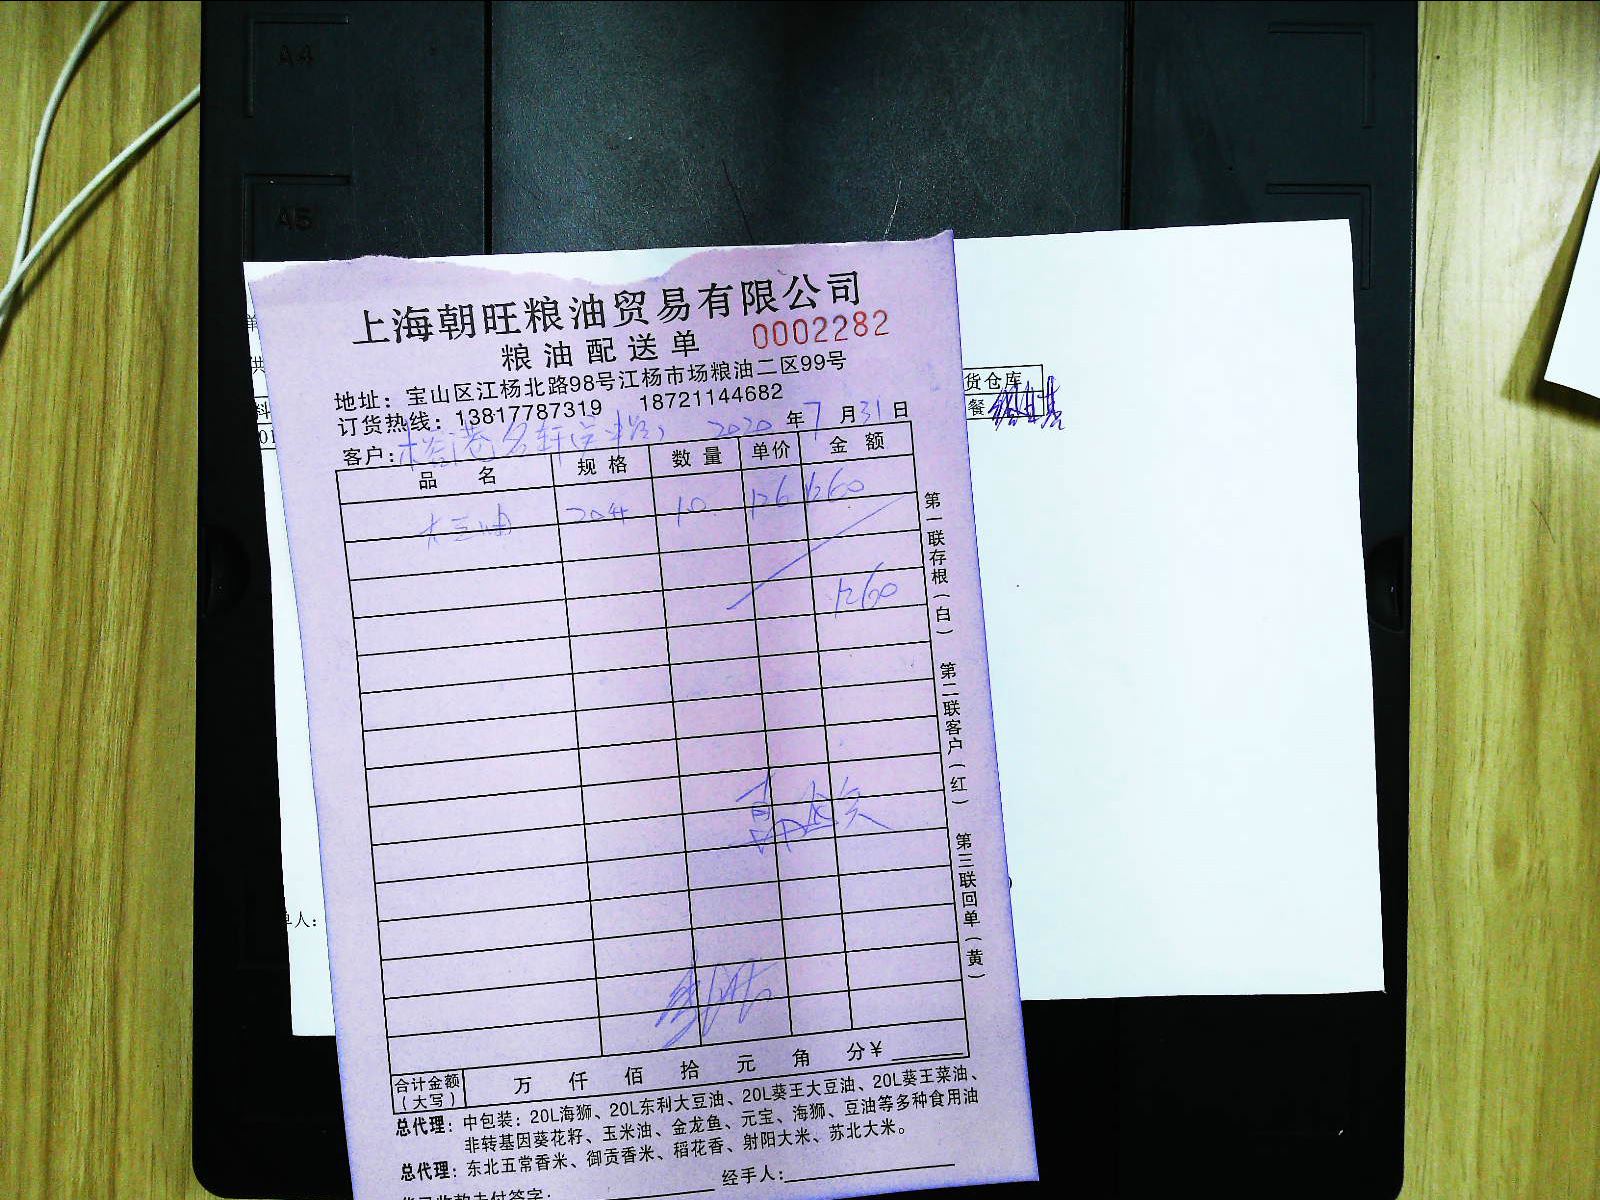 A4
A5
上海朝旺粮油贸易有限公司
粮油配送单 0002282
地址：宝山区江杨北路98号江杨市场粮油二区99号
订货热线：13817787319 18721144682
客户： 2020年7月31日
品名 规格 数量 单价 金额
大豆油 20升 10 126 1260
1260
第一联存根（白） 第二联客户（红） 第三联回单（黄）
合计金额（大写） 万 仟 佰 拾 元 角 分￥
总代理：中包装：20L海狮、20L东利大豆油、20L葵王大豆油、20L葵王菜油、
非转基因葵花籽、玉米油、金龙鱼、元宝、海狮、豆油等多种食用油
总代理：东北五常香米、御贡香米、稻花香、射阳大米、苏北大米。
经手人：
货仓库
餐
供
料
01
单人：